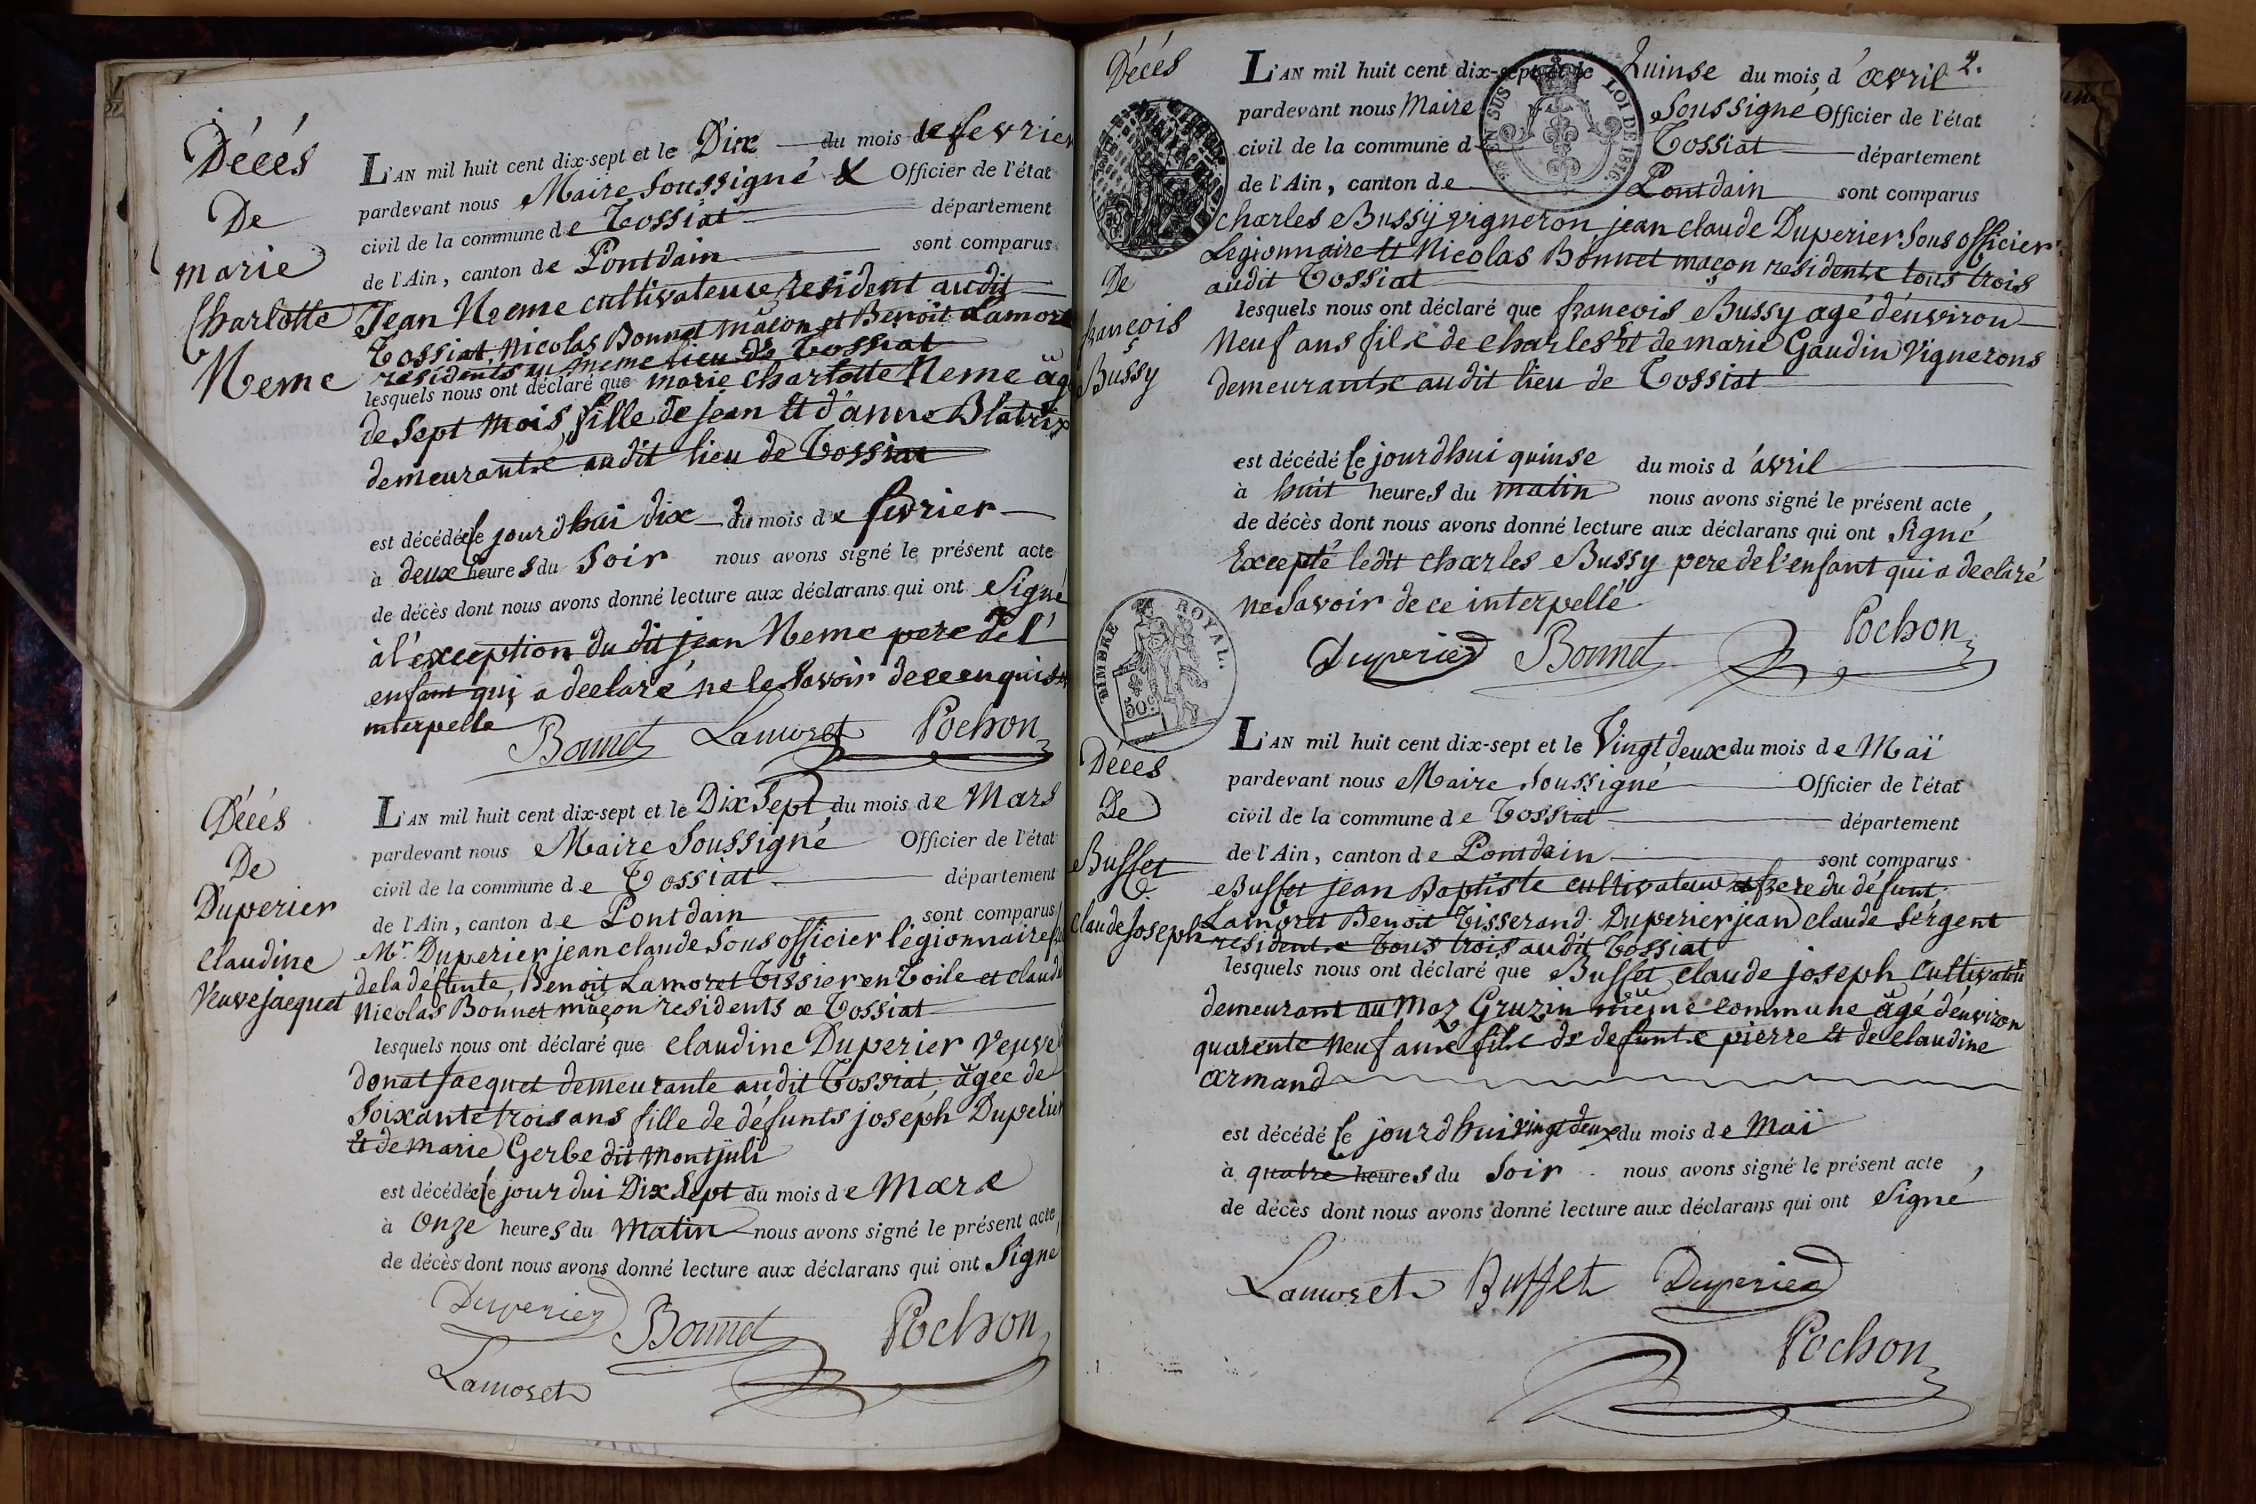 Décés
De
marie
Charlotte
Neme
L'AN mil huit cent dix-sept et le Dix du mois de fevrier
pardevant nous Maire Soussigné & Officier de l'état
civil de la commune de Tossiat département
de l'Ain, canton de Pontdain sont comparus
Jean Neme cultivateur resident audit
Tossiat, Nicolas Bonnet maçon et Benoit Lamoret
residents au meme lieu de Tossiat
lesquels nous ont déclaré que marie charlotte Neme agé
de sept mois, fille de jean Et d'anne Blatrix
demeurants audit lieu de Tossiat
est décédée le jourdhui dix du mois de fevrier
à deux heures du Soir nous avons signé le présent acte
de décès dont nous avons donné lecture aux déclarans qui ont Signé
à l'exception du dit jean Neme pere de l'
enfant qui a declaré ne le Savoir de ce enquis et
interpelle
Bonnet Lamoret Pochon
Décés
De
Duperier
Claudine
Veuve jacquet
L'AN mil huit cent dix-sept et le Dix Sept du mois de Mars
pardevant nous Maire Soussigné Officier de l'état
civil de la commune de Tossiat département
de l'Ain, canton de Pontdain sont comparus
Mr Duperier jean claude Sous officier légionnaire
de la défunte, Benoit Lamoret Tissier en Toile et claude
Nicolas Bonnet maçon residents a Tossiat
lesquels nous ont déclaré que claudine Duperier Veuve
donat Jacquet demeurante audit Tossiat, agée de
Soixante trois ans fille de défunts joseph Duperier
Et de marie Gerbe dit montjuli
est décédée le jourdui Dix Sept du mois de Mars
à Onze heures du Matin nous avons signé le présent acte
de décès dont nous avons donné lecture aux déclarans qui ont Signe
Duperier Bonnet Pochon
Lamoret
2.
Décés
De
francois
Bussy
L'AN mil huit cent dix-sept et le Quinse du mois d'avril
pardevant nous Maire Soussigné, Officier de l'état
civil de la commune d Tossiat département
de l'Ain, canton de Pontdain sont comparus
EN SUS LOI DE 1816.
charles Bussy vigneron jean claude Duperier Sous officier
Légionnaire Et Nicolas Bonnet maçon residents tous trois
audit Tossiat
lesquels nous ont déclaré que francois Bussy agé d'environ
Neuf ans fils de charles Et de marie Gaudin Vignerons
demeurants audit lieu de Tossiat
est décédé le jourdhui quinse du mois d'avril
à huit heures du matin nous avons signé le présent acte
de décès dont nous avons donné lecture aux déclarans qui ont Signé
Excepté ledit charles Bussy pere de l'enfant qui a declaré
ne Savoir de ce interpellé
Duperier Bonnet Pochon
TIMBRE ROYAL.
50c
Décés
De
Buffet
Claude Joseph
L'AN mil huit cent dix-sept et le Vingt deux du mois de Maï
pardevant nous Maire Soussigné Officier de l'état
civil de la commune de Tossiat département
de l'Ain, canton de Pontdain sont comparus
Buffet jean Baptiste cultivateur frere du défunt
Lamoret Benoit Tisserand. Duperier jean claude Sergent
residents Tous trois audit Tossiat
lesquels nous ont déclaré que Buffet claude joseph cultivateur
demeurant au Maz Gruzin même commune agé d'environ
quarente neuf ans fils de defunts pierre Et de claudine
armand
est décédé le jourdhui vingt deux du mois de Maï
à quatre heures du Soir nous avons signé le présent acte
de décès dont nous avons donné lecture aux déclarans qui ont Signé
Lamoret Buffet Duperier
Pochon